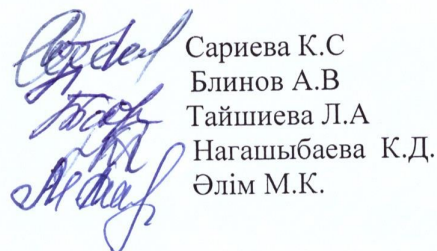 Сариева К.С
Блинов А.В
Тайшиева Л.А
Нагашыбаева К.Д.
Әлім М.К.